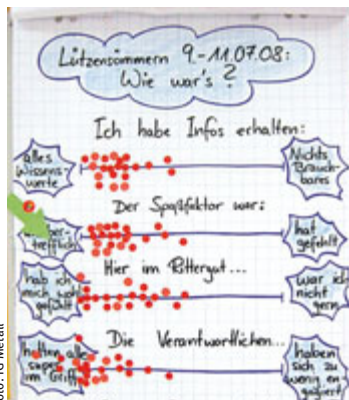 Lützensömmern 9.-11.07.08:
Wie war's?
Ich habe Infos erhalten:
alles
Wissens-
werte
Nichts
Brauch-
bares
Der Spaßfaktor war:
trefflich
hat
gefehlt
Hier im Rittergut...
hab ich
mich wohl
gefühlt
war ich
nicht
gern
Die Verantwortlichen...
hatten alles
super
im Griff
haben
sich zu
wenig en-
gagiert